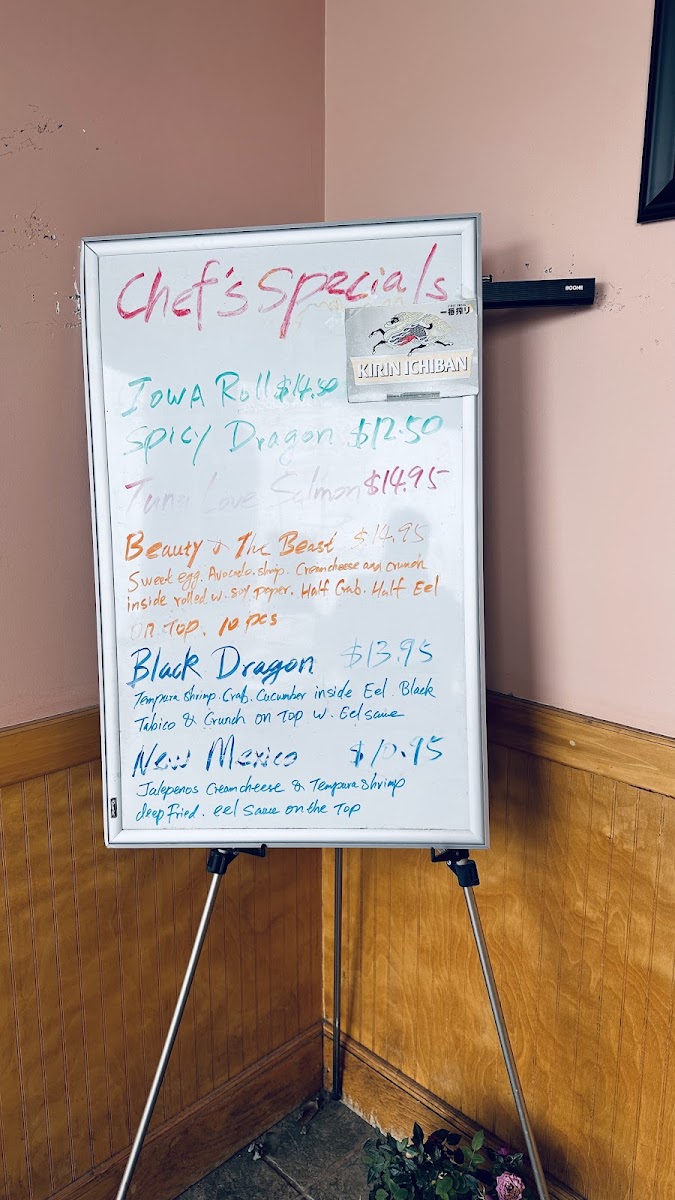 Chef's Specials
一番搾り
KIRIN ICHIBAN
Iowa Roll $14.50
Spicy Dragon $12.50
Tuna Love Salmon $14.95
Beauty & The Beast $14.95
Sweet egg. Avocado. shrip. Creamcheese and crunch
inside rolled w. soy peper. Half Crab. Half Eel
on Top. 10 pcs
Black Dragon $13.95
Tempura shrimp. Crab. Cucumber inside Eel. Black
Tabico & Crunch on Top w. Eel sauce
New Mexico $10.95
Jalepenos Creamcheese & Tempura shrimp
deep Fried. eel sauce on the Top